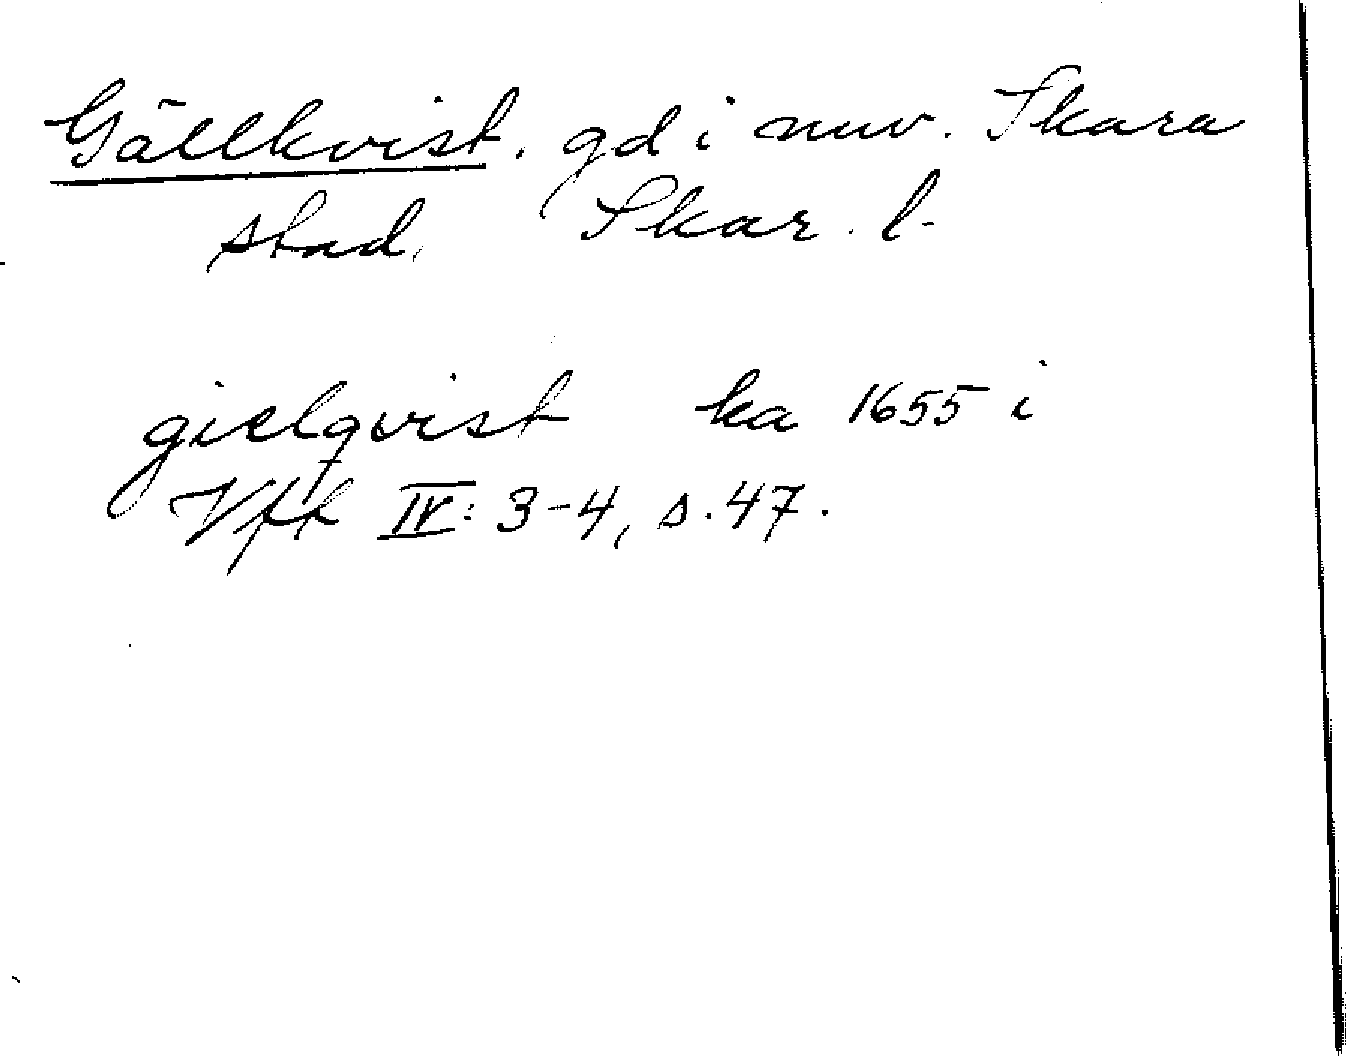 Gällkvist. gd i nuv. Skara
stad. Skar. l.
gielqvist ka 1655 i
Vfft IV: 3-4, s. 47.